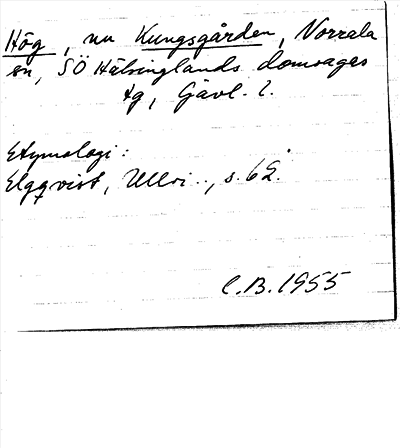 Hög, nu Kungsgården, Norrala
sn, SÖ Hälsinglands domsagas
tg, Gävl. l.
Etymologi:
Elgqvist, Ullvi.., s. 62.
C.B. 1955